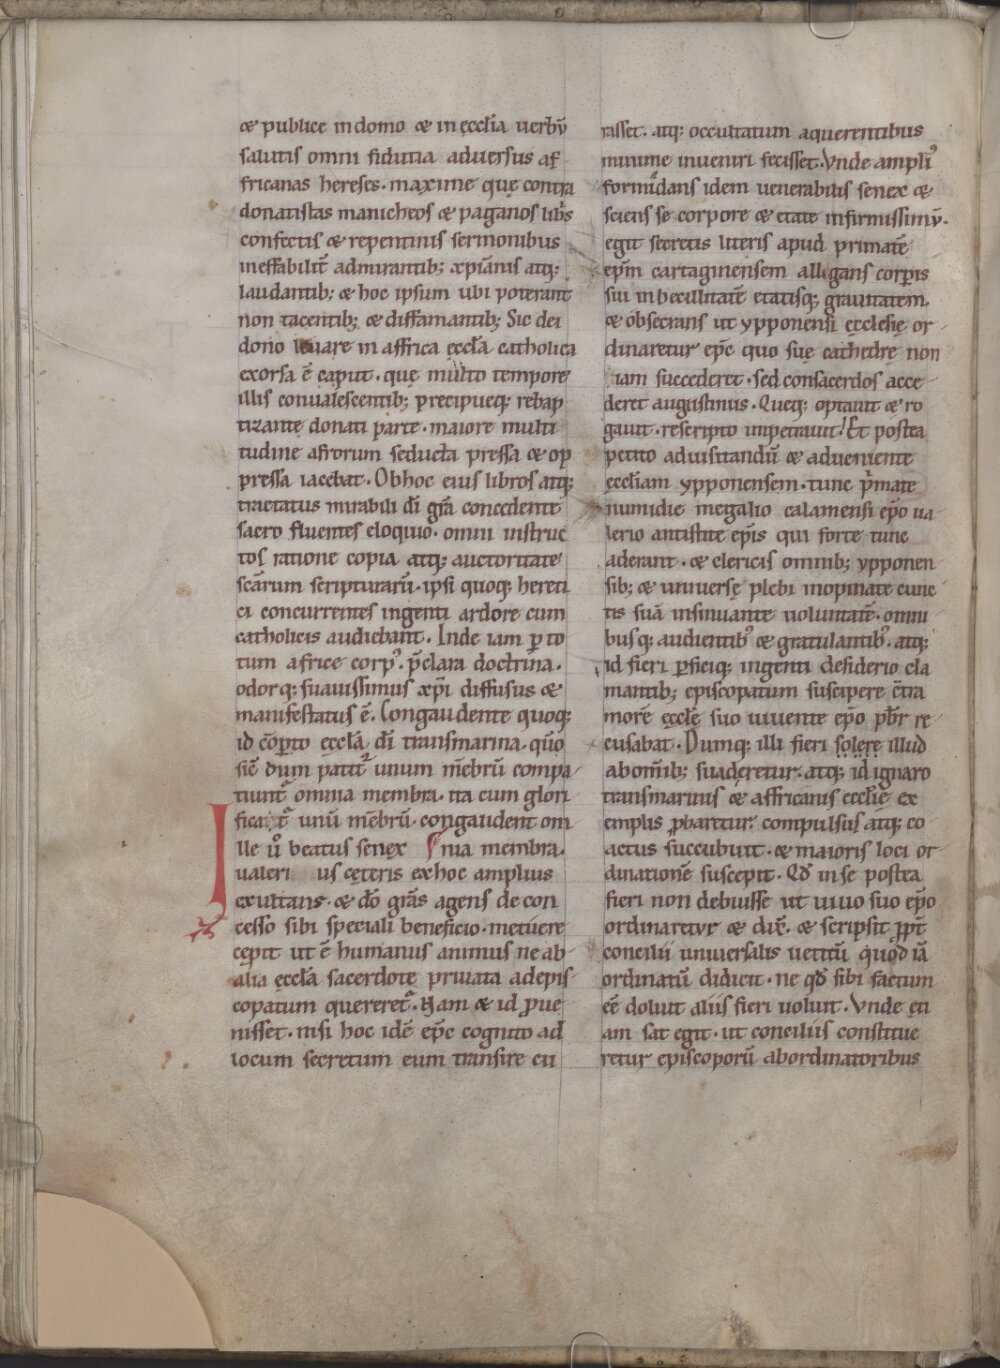 & publice in domo & in ęccl̄ia uerbū
salutis omni fidutia aduersus af
fricanas hereses. maxime quę contra
donatistas manicheos & paganos lib̄s
confectis & repentinis sermonibus
ineffabilit̄ admirantib; xp̄ianis atq;
laudantib; & hoc ipsum ubi poterant
non tacentib; & diffamantib; Sic dei
dono leuare in affrica ęccl̄a catholica
exorsa ē caput. quę multo tempore
illis conualescentib; precipueq; rebap
tizante donati parte. maiore multi
tudine afrorum seducta pressa & op
pressa iacebat. Ob hoc eius libros atq;
tractatus mirabili dī gr̄a concedente
sacro fluentes eloquio. omni instruc
tos ratione copia atq; auctoritate
sc̄arum scripturarū. ipsi quoq; hereti
ci concurrentes ingenti ardore cum
catholicis audiebant. Inde iam ꝑ to
tum africe corp᾽. p̄clara doctrina.
odorq; suauissimus xp̄i diffusus &
manifestatus ē. Congaudente quoq;
id cōꝑto ęccl̄a dī transmarina. qūo
sic̄ dum patit᾽ unum mēbrū compa
tiunt᾽ omnia membra. ita cum glori
ficat᾽ unū mēbrū. congaudent om
Ille ū beatus senex nia membra.
ualeri us cęteris ex hoc amplius
exultans. & dō grās agens de con
cesso sibi speciali beneficio. metuere
cepit ut ē humanus animus ne ab
alia ęccl̄a sacerdote priuata ad epis
copatum quereret᾽. Nam & id ꝓue
nisset. nisi hoc idē ep̄c cognito ad
locum secretum eum transire cu
rasset. atq; occultatum a querentibus
minime inueniri fecisset. Vnde ampli᾽
formidans idem uenerabilis senex &
sciens se corpore & etate infirmissimū.
egit secretis literis apud primatē
ep̄m cartaginensem allegans corꝑis
sui inbecillitatē etatisq; grauitatem.
& obsecrans ut ypponensi ęcclesię or
dinaretur ep̄c quo suę cathedrę non
iam succederet. sed consacerdos acce
deret augustinus. Queq; optauit & ro
gauit. rescripto impetrauit. Et postea
petito ad uisitandū & adueniente
ęccl̄iam ypponensem. tunc p̄mate
numidie megalio calamensi ep̄o ua
lerio antistite ep̄is qui forte tunc
aderant. & clericis omnib; ypponen
sib; & uniuersę plebi inopinate cunc
tis suā insinuante uoluntatē. omni
busq; audientib᾽ & gratulantib᾽. atq;
id fieri ꝑficiq; ingenti desiderio cla
mantib; episcopatum suscipere c̄tra
morē ęccl̄ę suo uiuente ep̄o pb̄r re
cusabat. Dumq; illi fieri solere illud
ab om̄ib; suaderetur. atq; id ignaro
transmarinis & affricanis ęccl̄ię ex
emplis ꝓbaretur. compulsus atq; co
actus succubuit. & maioris loci or
dinationē suscepit. Qd̄ in se postea
fieri non debuisse ut uiuo suo ep̄o
ordinaretur & dix̄. & scripsit ꝓpt̄
concilii uniuersalis uetitū quod iā
ordinatū didicit. ne qd̄ sibi factum
eē doluit aliis fieri uoluit. Vnde eti
am sat egit. ut conciliis constitue
retur episcoporū ab ordinatoribus